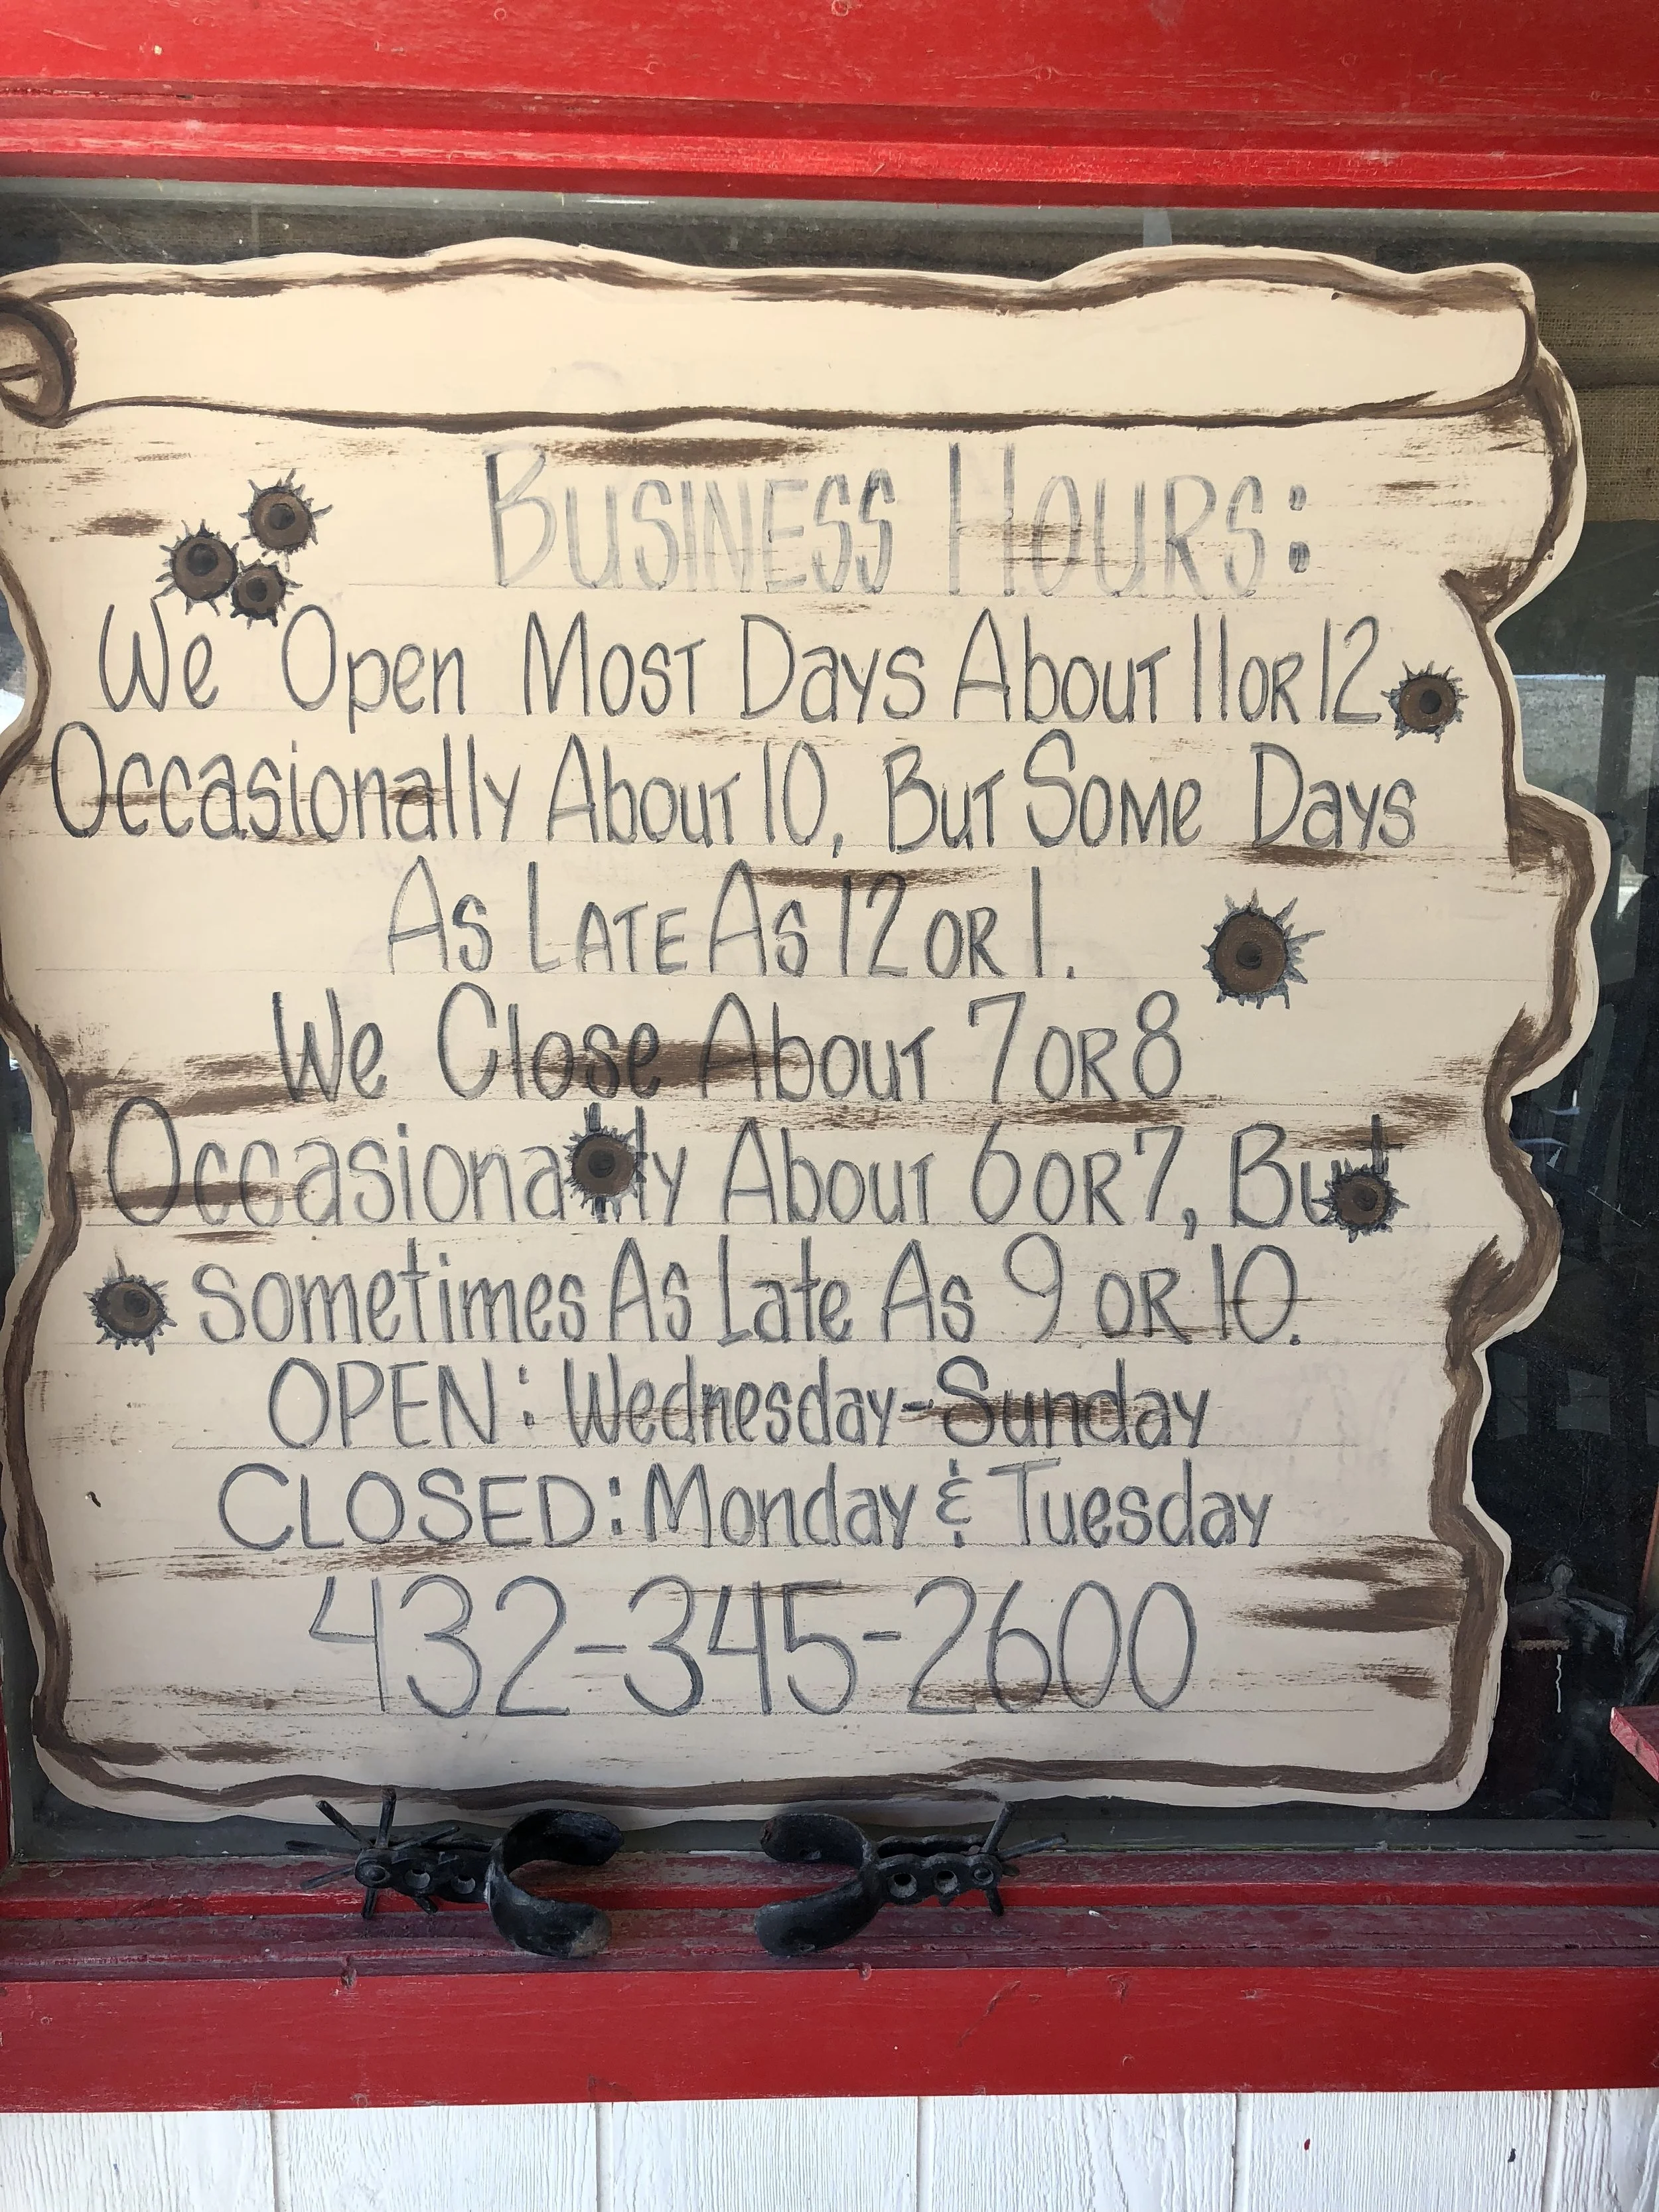 Business Hours:
We Open Most Days About 11 or 12
Occasionally About 10, But Some Days
As Late As 12 or 1.
We Close About 7 or 8
Occasionally About 6 or 7, But
sometimes As Late As 9 or 10.
OPEN: Wednesday-Sunday
CLOSED: Monday & Tuesday
432-345-2600